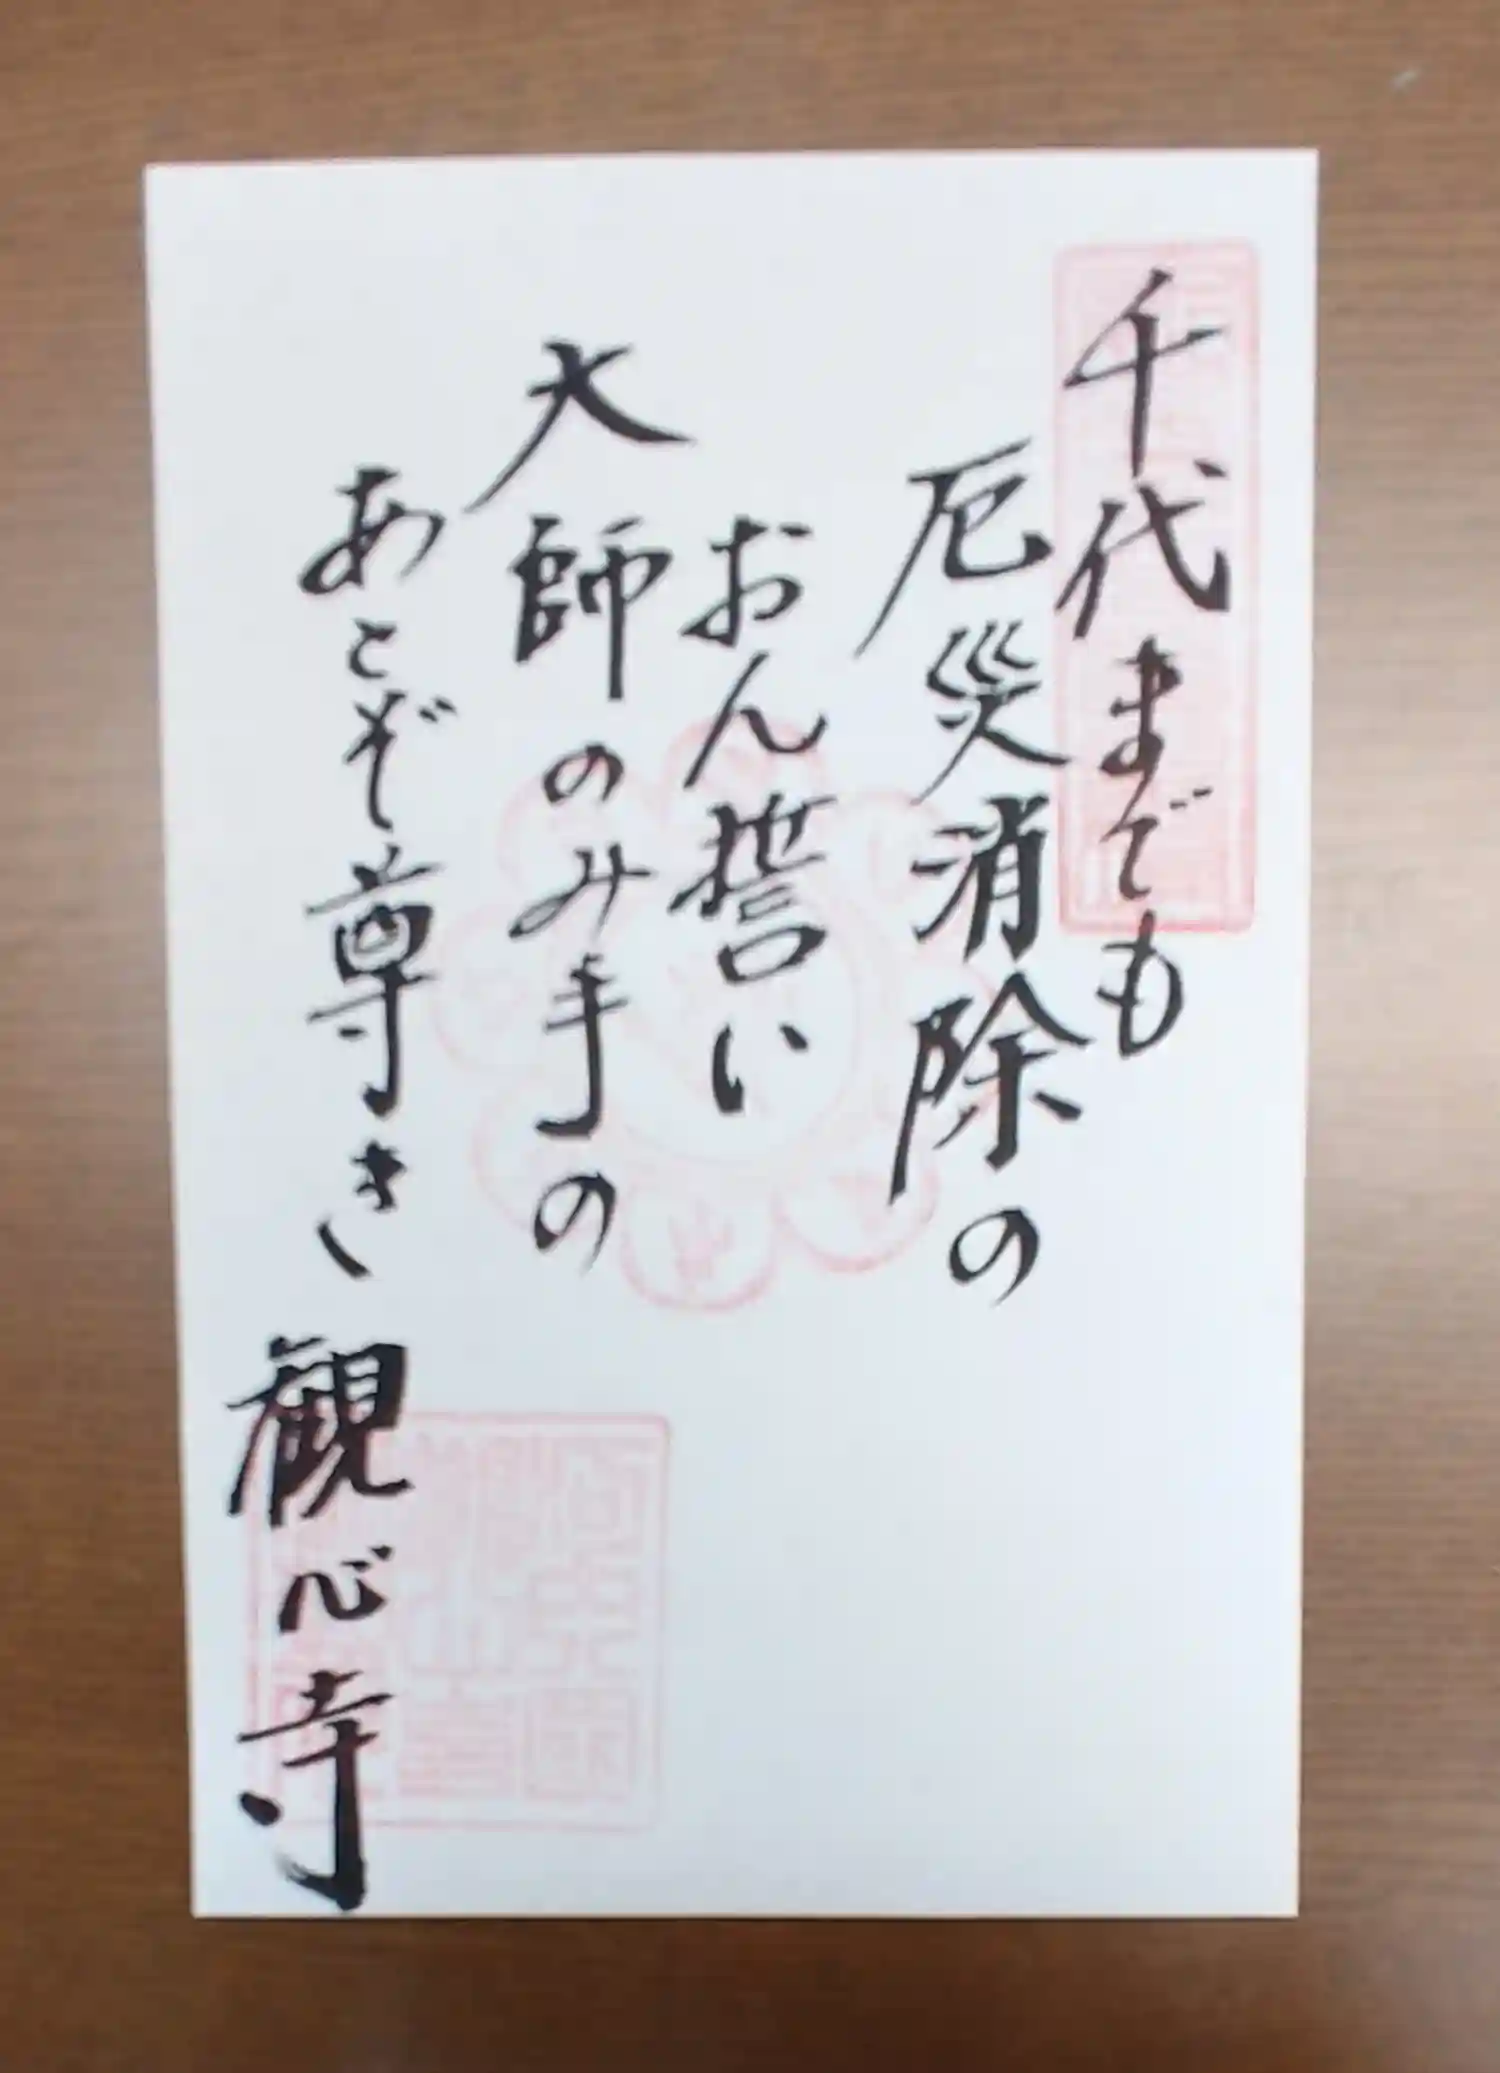 千代までも
厄災消除の
おん誓い
大師のみ手の
あこぞ尊き
観心寺